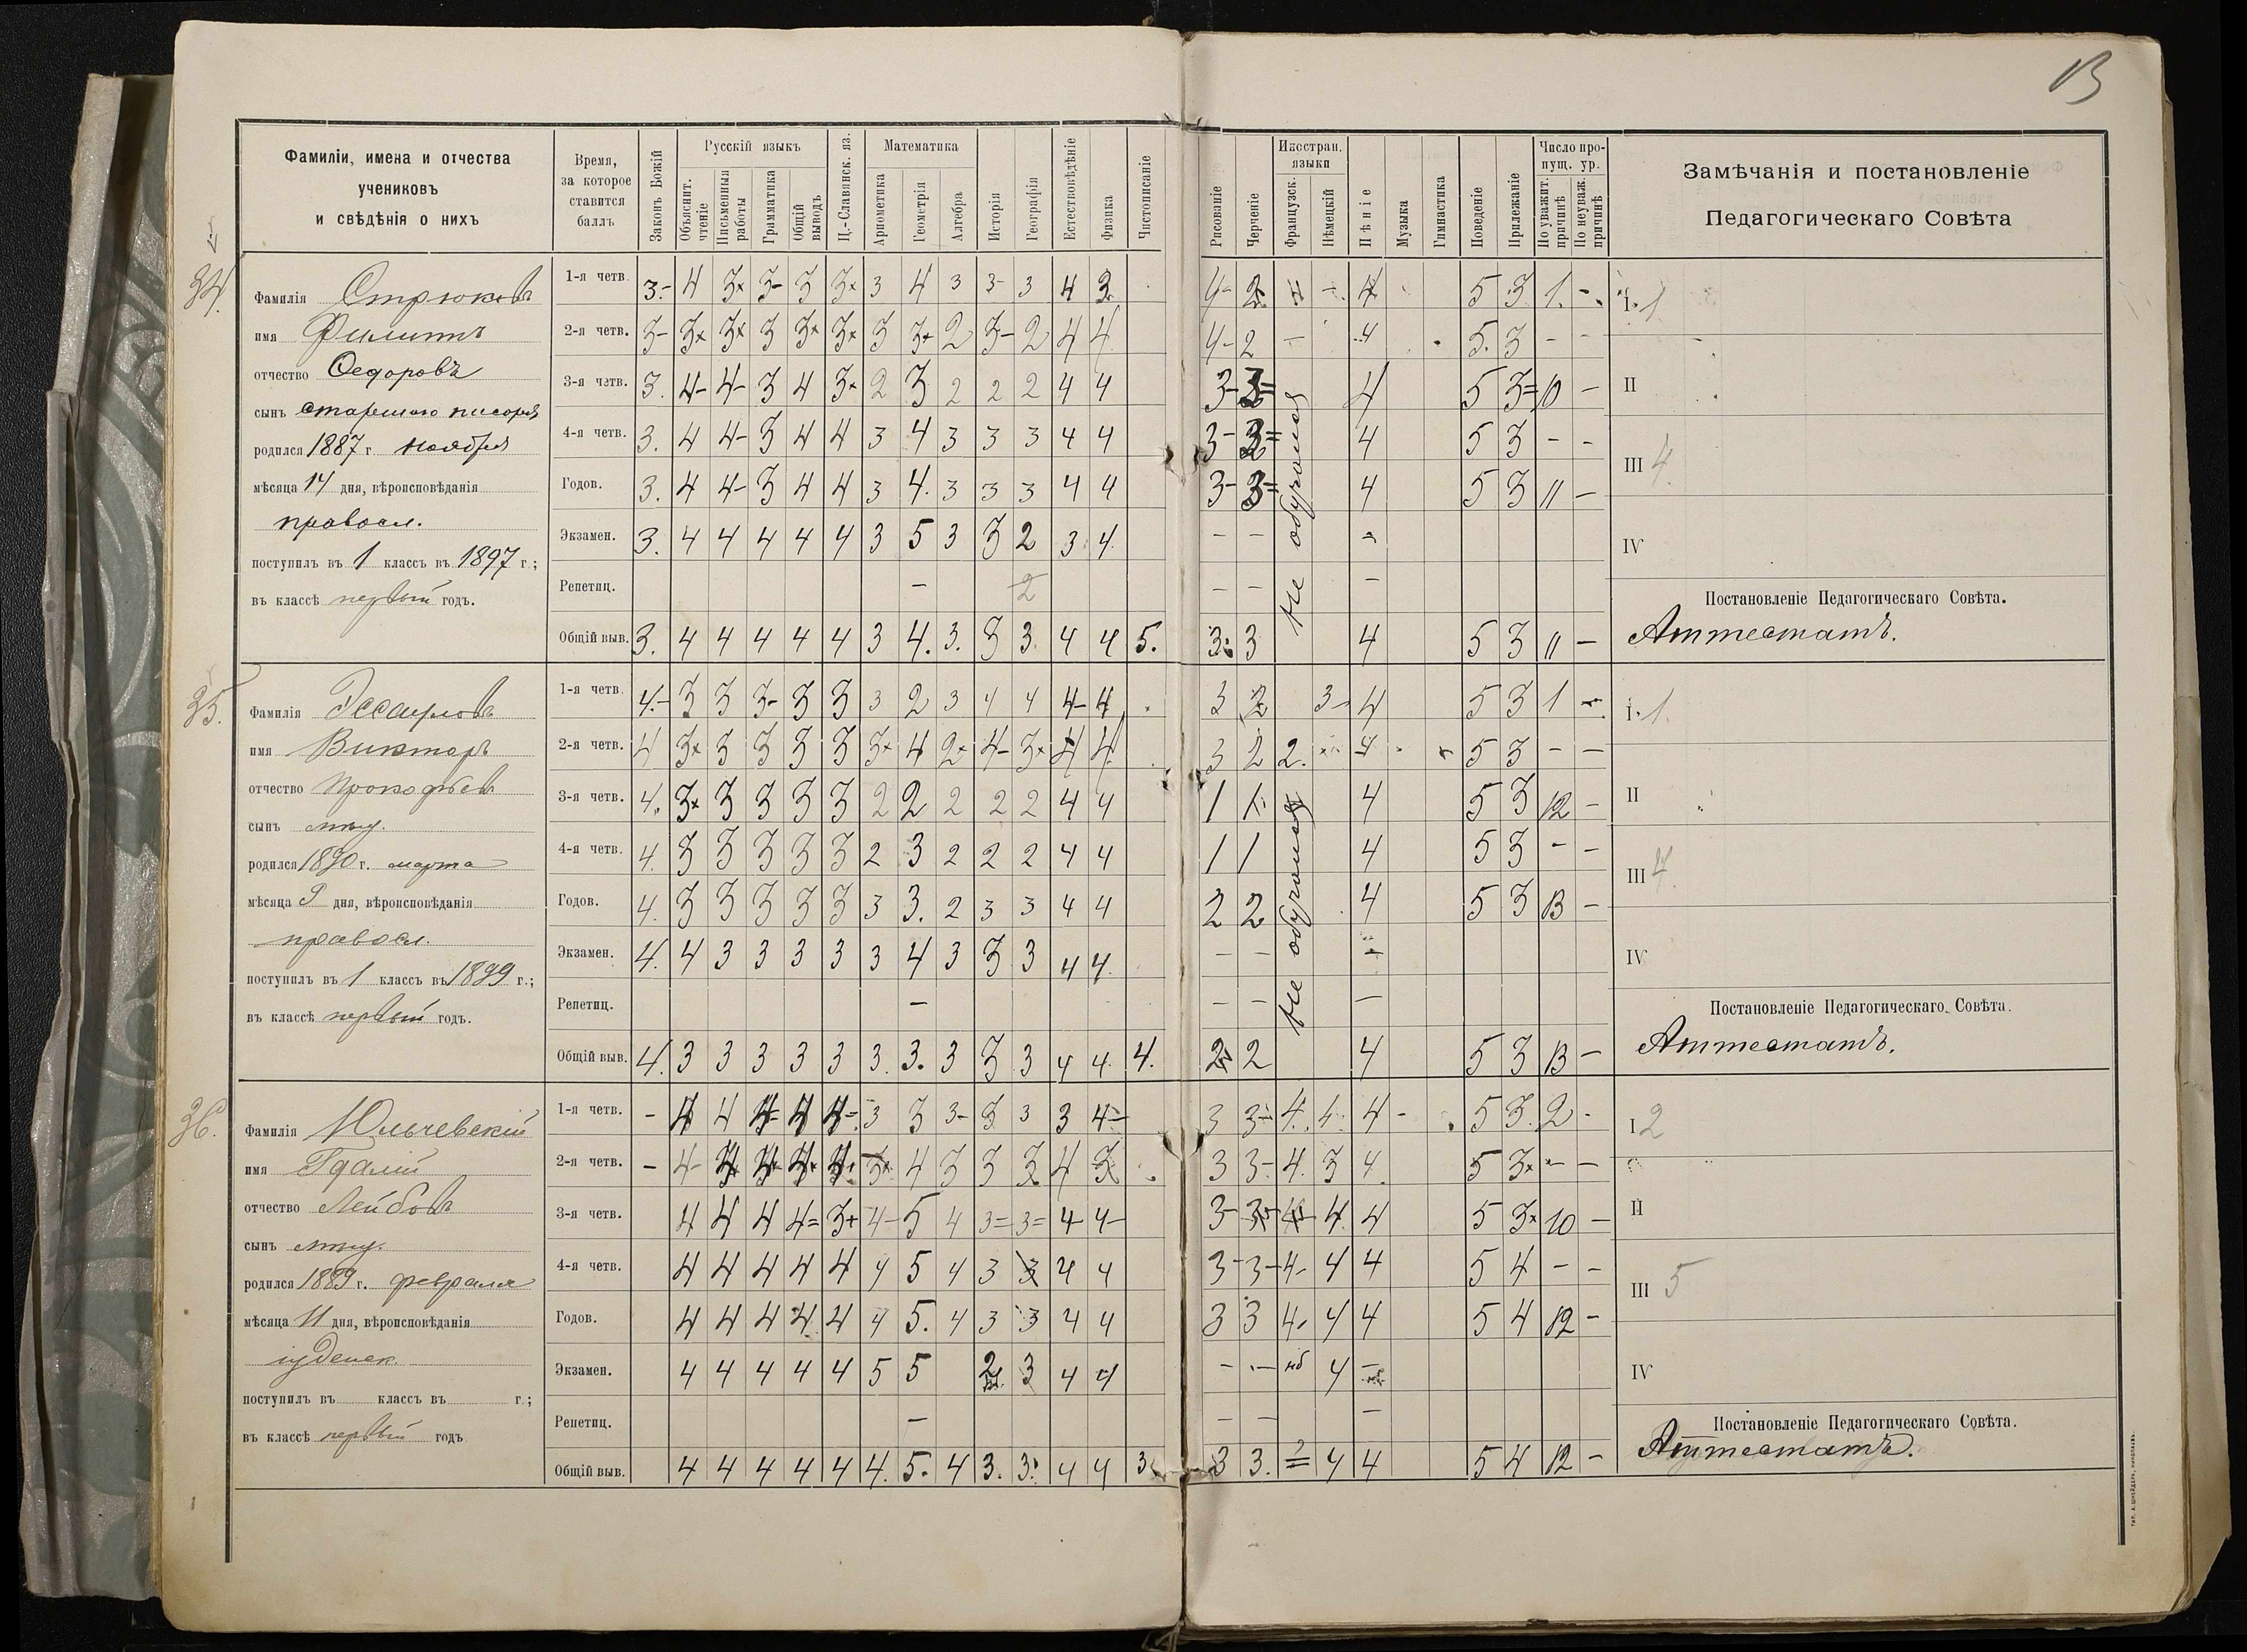 13
Фамиліи, имена и отчества
учениковъ
и свѣдѣнія о нихъ
Время,
за которое
ставится
баллъ
Законъ Божій
Русскій языкъ
Объяснит. чтеніе
Письменныя работы
Грамматика
Общій выводъ
Ц.-Славянск. яз.
Математика
Ариѳметика
Геометрія
Алгебра
Исторія
Географія
Естествовѣдѣніе
Физика
Чистописаніе
Рисованіе
Черченіе
Иностран. языки
Французск.
Нѣмецкій
Пѣніе
Музыка
Гимнастика
Поведеніе
Прилежаніе
Число пропущ. ур.
По уважит. причинѣ
По неуваж. причинѣ
Замѣчанія и постановленіе
Педагогическаго Совѣта
34.
Фамилія Стрюковъ
имя Филиппъ
отчество Ѳедоровъ
сынъ старшаго писаря
родился 1887 г. ноября
мѣсяца 14 дня, вѣроисповѣданія
правосл.
поступилъ въ 1 классъ въ 1897 г.;
въ классѣ первый годъ.
1-я четв. 3- 4 3+ 3- 3 3+ 3 4 3 3- 3 4 3
2-я четв. 3- 3+ 3+ 3 3+ 3+ 3 3+ 2 3- 2 4 4 4- 2 – 4 5 3 - -
3-я четв. 3. 4- 4- 3 4 3+ 2 3 2 2 2 4 4 3- 3= 4 5 3= 10 -
4-я четв. 3. 4 4- 3 4 4 3 4 3 3 3 4 4 3- 3= 4 5 3 - -
Годов. 3. 4 4- 3 4 4 3 4. 3 3 3 4 4 3- 3= 4 5 3 11 -
Экзамен. 3. 4 4 4 4 4 3 5 3 3 2 3 4 - - -
Репетиц. - 2 - - -
Общій выв. 3. 4 4 4 4 4 3 4. 3. 3 3. 4 4 5. 3. 3 4 5 3 11 -
Не обучался
I. 1
II
III 4
IV
Постановленіе Педагогическаго Совѣта.
Аттестатъ.
35.
Фамилія
имя Викторъ
отчество Прокофьевъ
сынъ мѣщ.
родился 1890 г. марта
мѣсяца 9 дня, вѣроисповѣданія
правосл.
поступилъ въ 1 классъ въ 1899 г.;
въ классѣ первый годъ.
1-я четв. 4.- 3 3 3- 3 3 3 2 3 4 4 4- 4 3 2 3- 4 5 3 1 -
2-я четв. 4 3+ 3 3 3 3 3+ 4 2+ 4- 3+ 4 4 3 2 2. 4 5 3 - -
3-я четв. 4. 3+ 3 3 3 3 2 2 2 2 2 4 4 1 1 4 5 3 12 -
4-я четв. 4. 3 3 3 3 3 2 3 2 2 2 4 4 1 1 4 5 3 - -
Годов. 4. 3 3 3 3 3 3 3. 2 3 3 4 4 2 2 4 5 3 13 -
Экзамен. 4. 4 3 3 3 3 3 4 3 3 3 4 4. - - -
Репетиц. - - - -
Общій выв. 4. 3 3 3 3 3 3. 3. 3 3 3 4 4. 4. 2 2 4 5 3 13 -
Не обучался
I. 1.
II
III 4.
IV
Постановленіе Педагогическаго Совѣта.
Аттестатъ.
36.
Фамилія Юльчевскій
имя Гдалій
отчество Лейбовъ
сынъ мѣщ.
родился 1889 г. февраля
мѣсяца 11 дня, вѣроисповѣданія
іудейск.
поступилъ въ классъ въ г.;
въ классѣ первый годъ
1-я четв. - 4 4 4= 4 4- 3 3 3- 3 3 3 4- 3 3- 4. 4. 4 5 3. 2 -
2-я четв. 3 3- 4. 3 4. 5 3+ - -
3-я четв. 4 4 4 4= 3+ 4- 5 4 3= 3= 4 4- 3- 4 4 5 3+ 10 -
4-я четв. 4 4 4 4 4 4 5 4 3 3 4 4 3- 3- 4- 4 4 5 4 - -
Годов. 4 4 4 4 4 4 5. 4 3 3 4 4 3 3 4- 4 4 5 4 12 -
Экзамен. 4 4 4 4 4 5 5 3 4 4 - - нб 4 -
Репетиц. - - - -
Общій выв. 4 4 4 4 4 4. 5. 4 3. 3. 4 4 3 3 3. = 4 4 5 4 12 -
I 2
II
III 5
IV
Постановленіе Педагогическаго Совѣта.
Аттестатъ.
ТИП. А. ШНЕЙДЕРА, НИКОЛАЕВЪ.